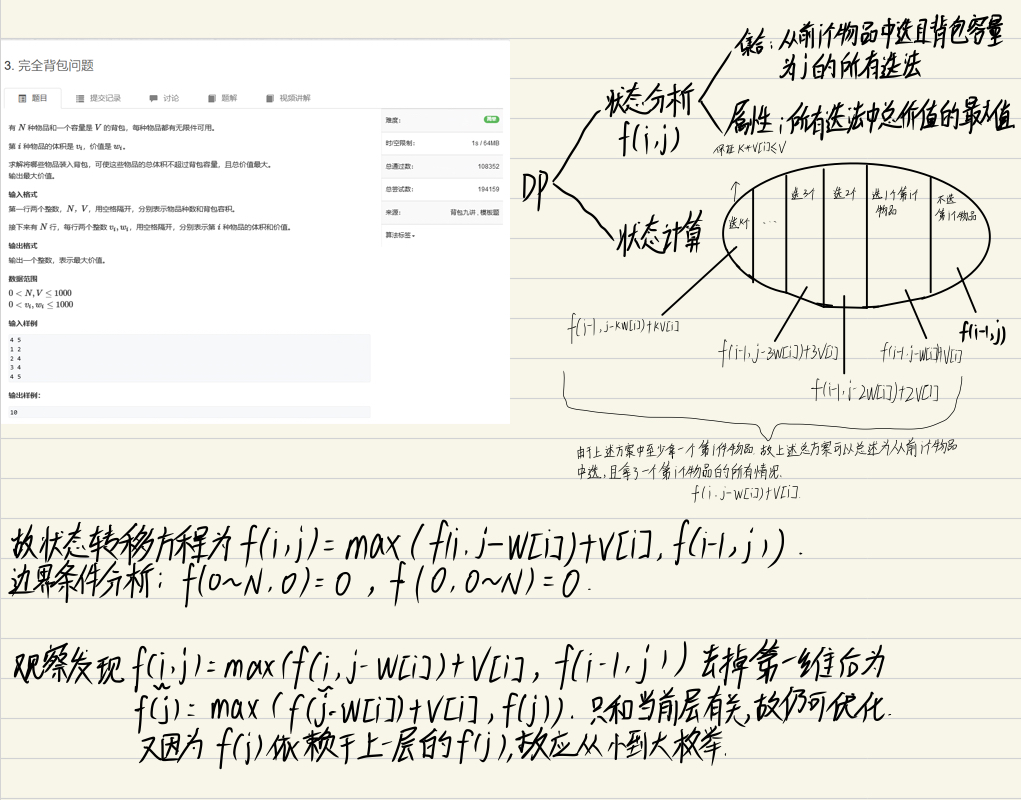 3. 完全背包问题
题目 提交记录 讨论 题解 视频讲解
有 N 种物品和一个容量是 V 的背包，每种物品都有无限件可用。
第 i 种物品的体积是 vᵢ，价值是 wᵢ。
求解将哪些物品装入背包，可使这些物品的总体积不超过背包容量，且总价值最大。
输出最大价值。
输入格式
第一行两个整数，N，V，用空格隔开，分别表示物品种数和背包容积。
接下来有 N 行，每行两个整数 vᵢ, wᵢ，用空格隔开，分别表示第 i 种物品的体积和价值。
输出格式
输出一个整数，表示最大价值。
数据范围
0 < N, V ≤ 1000
0 < vᵢ, wᵢ ≤ 1000
输入样例
4 5
1 2
2 4
3 4
4 5
输出样例：
10
难度： 简单
时/空限制： 1s / 64MB
总通过数： 108352
总尝试数： 194159
来源： 背包九讲 , 模板题
算法标签
DP
状态分析
f(i,j)
集合：从前i个物品中选且背包容量
为j的所有选法
属性：所有选法中总价值的最大值
保证 K*V[i]≤V
状态计算
选K个
...
选3个
选2个
选1个第i个
物品
不选
第i个物品
f(i-1,j-KW[i])+KV[i]
f(i-1,j-3W[i])+3V[i]
f(i-1,j-2W[i])+2V[i]
f(i-1,j-W[i])+V[i]
f(i-1,j)
由于上述方案中至少拿一个第i件物品,故上述总方案可以总述为从前i个物品
中选,且拿了一个第i个物品的的所有情况.
f(i,j-W[i])+V[i].
故状态转移方程为 f(i,j)=max(f(i,j-W[i])+V[i],f(i-1,j)).
边界条件分析：f(0~N,0)=0，f(0,0~N)=0.
观察发现 f(i,j)=max(f(i,j-W[i])+V[i],f(i-1,j))去掉第一维后为
f(j)=max(f(j-W[i])+V[i],f(j)).只和当前层有关,故仍可优化.
又因为 f(j)依赖于上一层的f(j),故应从小到大枚举.